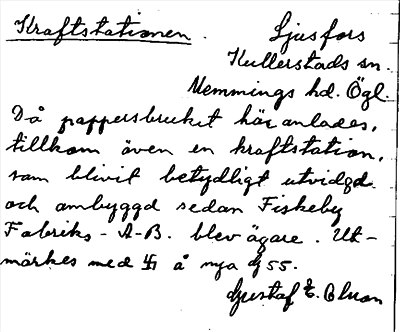 Kraftstationen. Ljusfors
Kullerstads sn.
Memmings hd. Ögl.
Då pappersbruket här anlades,
tillkom även en kraftstation,
som blivit betydligt utvidgd
och ombyggd sedan Fiskeby
Fabriks-A-B. blev ägare. Ut-
märkes med 卐 å nya 55.
Gustaf E. Olson